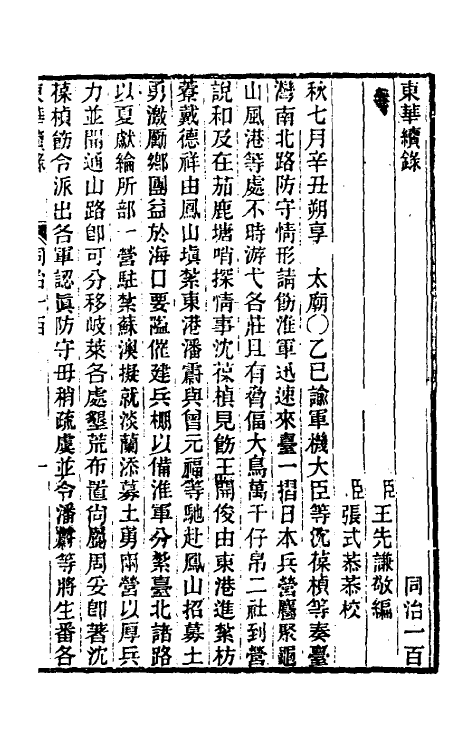 東華續錄　同治一百
臣王先謙敬編
臣張式恭恭校
秋七月辛丑朔享　太廟〇乙巳諭軍機大臣等沈葆楨等奏臺
灣南北路防守情形請飭淮軍迅速來臺一摺日本兵營麕聚龜
山風港等處不時游弋各莊且有脅偪大鳥萬千仔帛二社到營
說和及在茄鹿塘哨探情事沈葆楨見飭王開俊由東港進紮枋
藔戴德祥由鳳山塡紮東港潘霨與曾元福等馳赴鳳山招募土
勇激勵鄉團益於海口要隘催建兵棚以備淮軍分紮臺北諸路
以夏獻綸所部一營駐紮蘇澳擬就淡蘭添募土勇兩營以厚兵
力並開通山路卽可分移岐萊各處墾荒布置尙屬周妥卽著沈
葆楨飭令派出各軍認眞防守毋稍疏虞並令潘霨等將生番各
東華續錄　同治一百　一